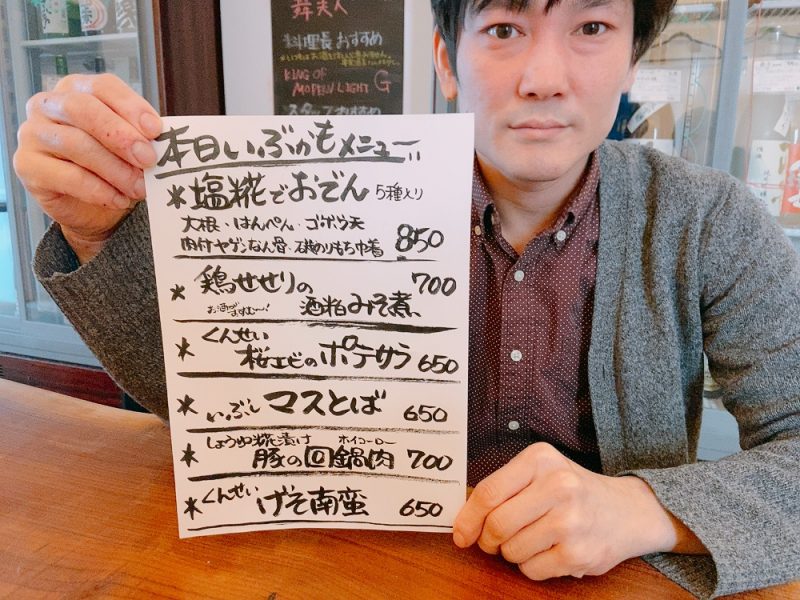 料理長おすすめ
KING OF
MODERN LIGHT G
スタッフおすすめ
本日いぶかもメニュー
*塩糀でおでん 5種入り
大根・はんぺん・ゴボウ天
肉付ヤゲンなん骨・磯のりもち巾着 850
*鶏せせりの 700
お酒がすすむ〜!
酒粕みそ煮
*くんせい
桜エビのポテサラ 650
*いぶしマスとば 650
しょうゆ糀漬け ホイコーロー
*豚の回鍋肉 700
*くんせいげそ南蛮 650